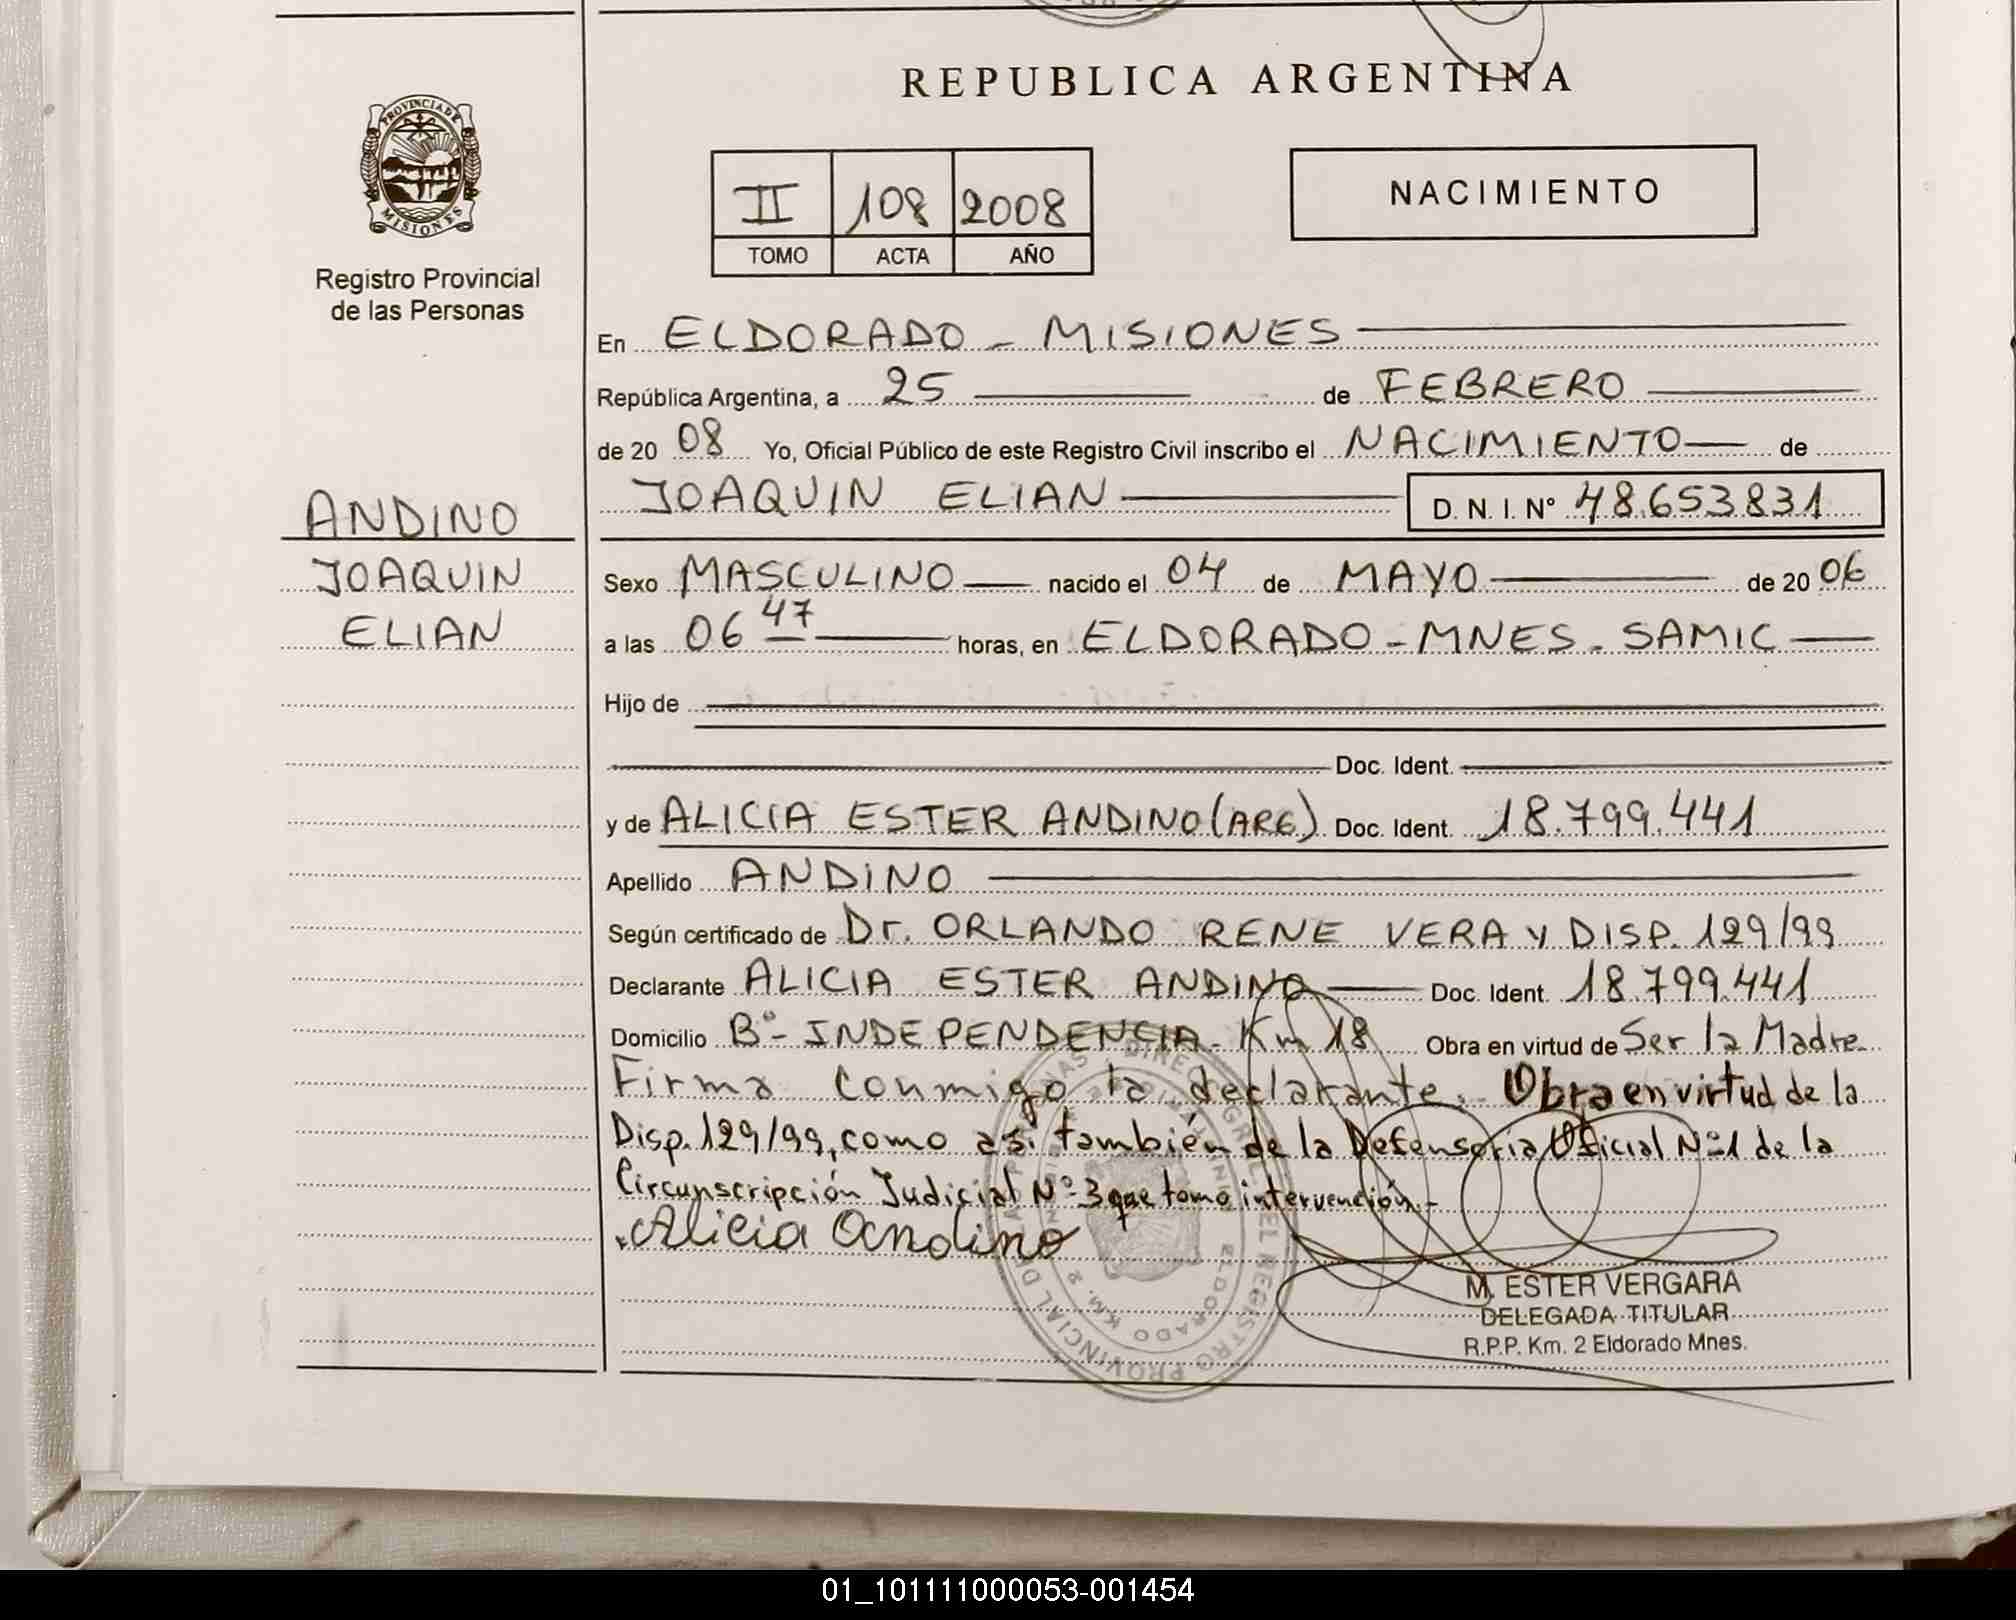 REPUBLICA ARGENTINA
PROVINCIA DE
MISIONES
Registro Provincial
de las Personas
II 108 2008
TOMO ACTA AÑO
NACIMIENTO
En ELDORADO - MISIONES
República Argentina, a 25 de FEBRERO
de 20 08 Yo, Oficial Público de este Registro Civil inscribo el NACIMIENTO de
JOAQUIN ELIAN D. N. I. Nº 48.653.831
ANDINO
JOAQUIN
ELIAN
Sexo MASCULINO nacido el 04 de MAYO de 20 06
a las 06 47 horas, en ELDORADO - MNES - SAMIC
Hijo de
Doc. Ident.
y de ALICIA ESTER ANDINO (ARG) Doc. Ident. 18.799.441
Apellido ANDINO
Según certificado de Dr. ORLANDO RENE VERA y DISP. 129/99
Declarante ALICIA ESTER ANDINO Doc. Ident. 18.799.441
Domicilio Bº - INDEPENDENCIA - Km 18 Obra en virtud de Ser la Madre
Firma conmigo la declarante. Obra en virtud de la
Disp. 129/99, como asi también de la Defensoria Oficial Nº 1 de la
Circunscripción Judicial Nº 3 que tomo intervención.-
Alicia Andino
M. ESTER VERGARA
DELEGADA TITULAR
R.P.P. Km. 2 Eldorado Mnes.
ELDORADO KM. 2
01_101111000053-001454